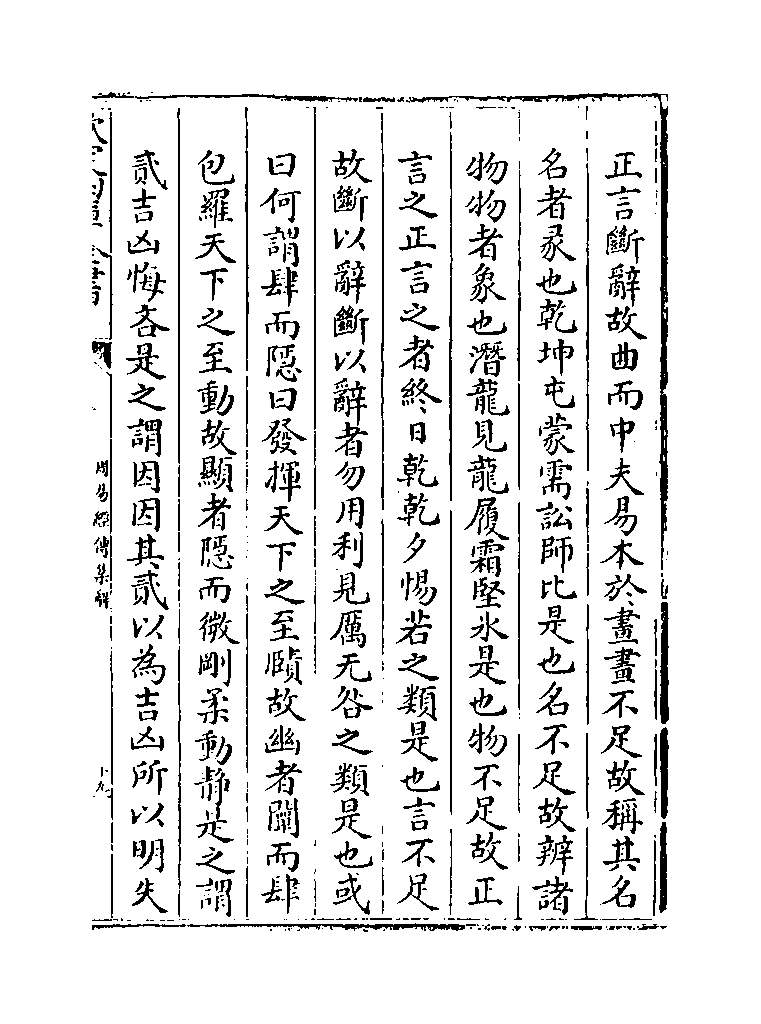 正言斷辭故曲而中夫易本於畫畫不足故稱其名
名者彖也乾坤屯蒙需訟師比是也名不足故辨諸
物物者象也潛龍見龍履霜堅氷是也物不足故正
言之正言之者終日乾乾夕惕若之類是也言不足
故斷以辭斷以辭者勿用利見厲无咎之類是也或
曰何謂肆而隱曰發揮天下之至賾故幽者闡而肆
包羅天下之至動故顯者隱而微剛柔動静是之謂
貳吉凶悔吝是之謂因因其貳以為吉凶所以明失
欽定四庫全書
周易經傳集解
十九